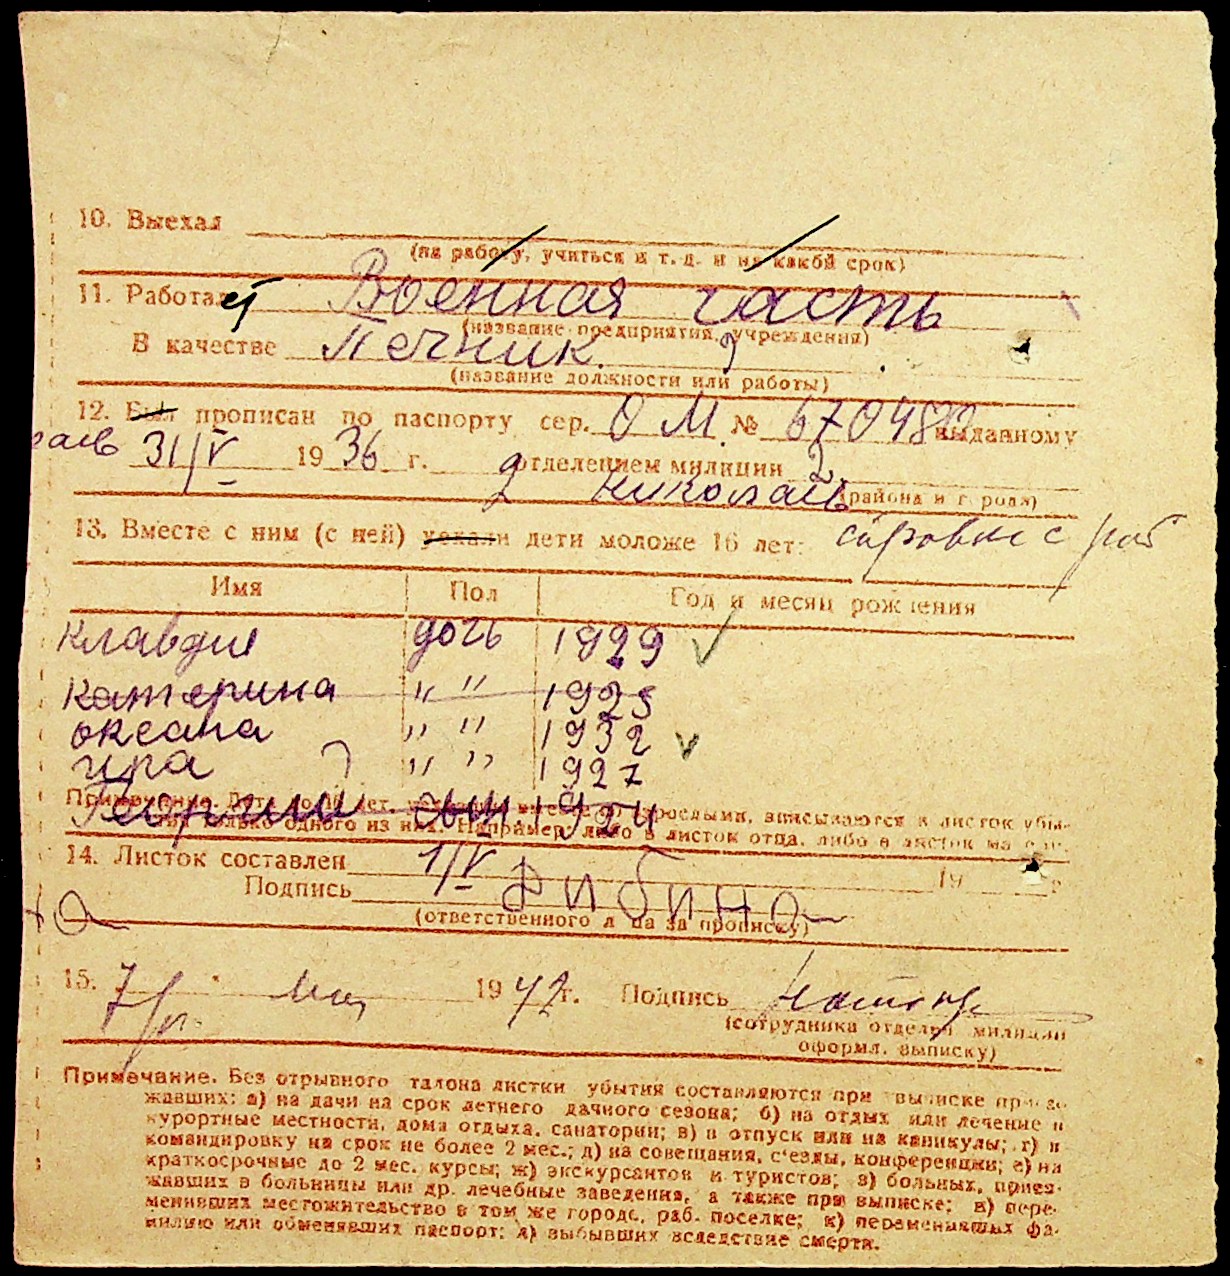 10. Выехал
(на работу, учиться и т. д. и на какой срок)
11. Работает Военная часть
(название предприятия, учреждения)
В качестве Печник
(название должности или работы)
12. Был прописан по паспорту сер. О М № 670489 выданному
31/V 1936 г. 2 отделением милиции
Николаев (района и города)
13. Вместе с ним (с ней) уехали дети моложе 16 лет:
Имя Пол Год и месяц рождения
Клавдие дочь 1929
Катерина " " 1925
Оксана " " 1932
Ира " " 1927
Георгий сын 1924
Примечание. Дети до 16 лет, уехавшие вместе со взрослыми, вписываются в листок убы-
только одного из них. Например, либо в листок отца, либо в листок матери.
14. Листок составлен 1/V 19 г.
Подпись Рибина
(ответственного лица за прописку)
15. 7 мая 1942 г. Подпись
(сотрудника отделен. милиции
оформл. выписку)
Примечание. Без отрывного талона листки убытия составляются при выписке приез-
жавших: а) на дачи на срок летнего дачного сезона; б) на отдых или лечение в
курортные местности, дома отдыха, санатории; в) в отпуск или на каникулы; г) в
командировку на срок не более 2 мес.; д) на совещания, с'езды, конференции; е) на
краткосрочные до 2 мес. курсы; ж) экскурсантов и туристов; з) больных, приез-
жавших в больницы или др. лечебные заведения, а также при выписке; и) пере-
менивших местожительство в том же городе, раб. поселке; к) переменивших фа-
милию или обменявших паспорт; л) выбывших вследствие смерти.